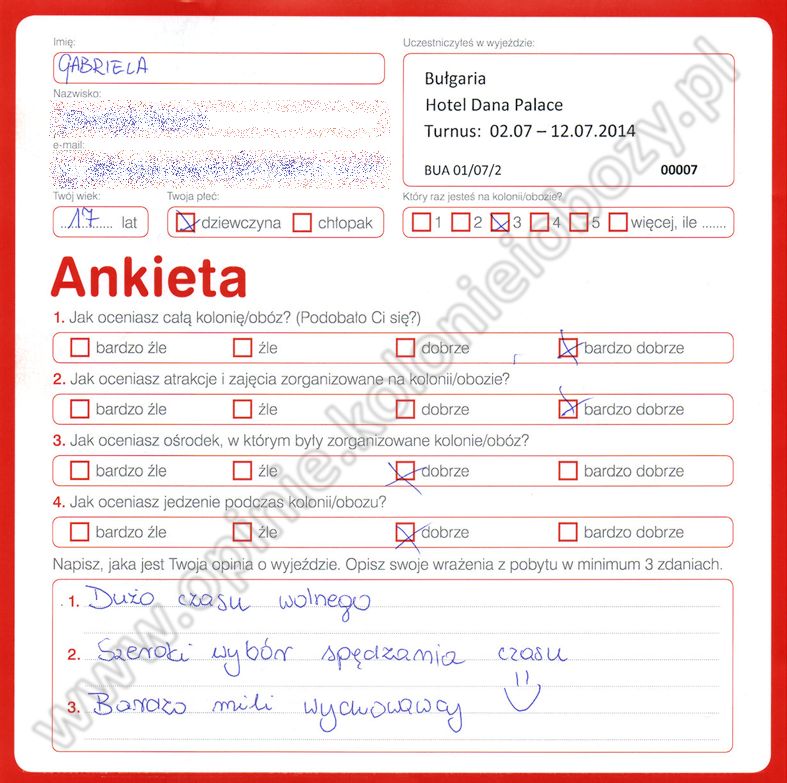 Imię:
GABRIELA
Nazwisko:
e-mail:
Twój wiek:
17 lat
Twoja płeć:
dziewczyna chłopak
Uczestniczyłeś w wyjeździe:
Bułgaria
Hotel Dana Palace
Turnus: 02.07 – 12.07.2014
BUA 01/07/2 00007
Który raz jesteś na kolonii/obozie?
1 2 3 4 5 więcej, ile .......
Ankieta
1. Jak oceniasz całą kolonię/obóz? (Podobało Ci się?)
bardzo źle źle dobrze bardzo dobrze
2. Jak oceniasz atrakcje i zajęcia zorganizowane na kolonii/obozie?
bardzo źle źle dobrze bardzo dobrze
3. Jak oceniasz ośrodek, w którym były zorganizowane kolonie/obóz?
bardzo źle źle dobrze bardzo dobrze
4. Jak oceniasz jedzenie podczas kolonii/obozu?
bardzo źle źle dobrze bardzo dobrze
Napisz, jaka jest Twoja opinia o wyjeździe. Opisz swoje wrażenia z pobytu w minimum 3 zdaniach.
1. Dużo czasu wolnego
2. Szeroki wybór spędzania czasu
3. Bardzo mili wychowawcy
www.opinie.kolonieiobozy.pl